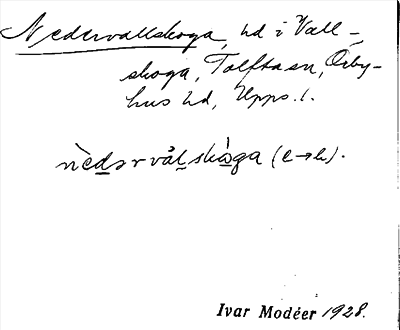 Nedervallskoga, hd i Vall-
skoga, Tolfta sn, Örby-
hus hd, Upps. l.
nèdərvålskòga (e→ə).
Ivar Modéer 1928.